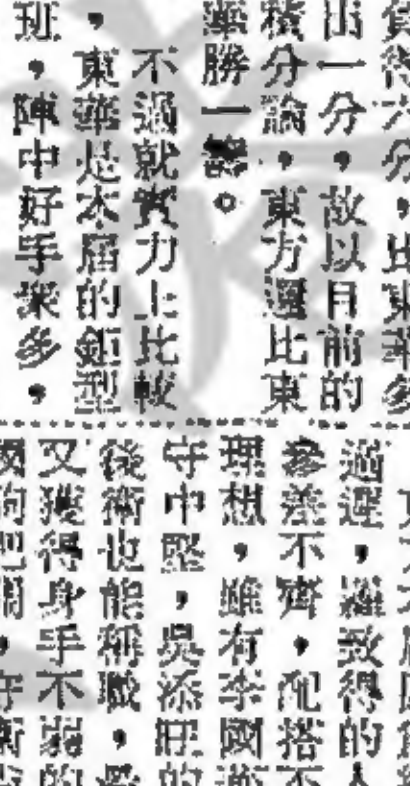 貨得六分，比東華多
出一分，故以目前的
積分論，東方還比東
華勝一籌。
不過就實力上比較
，東華是本屆的鉅型
班，陣中好手眾多，
過遲，羅致得的人
參差不齊，配搭不
理想，雖有李國
守中堅，吳添旺的
後衛也能稱職，
又獲得身手不弱的